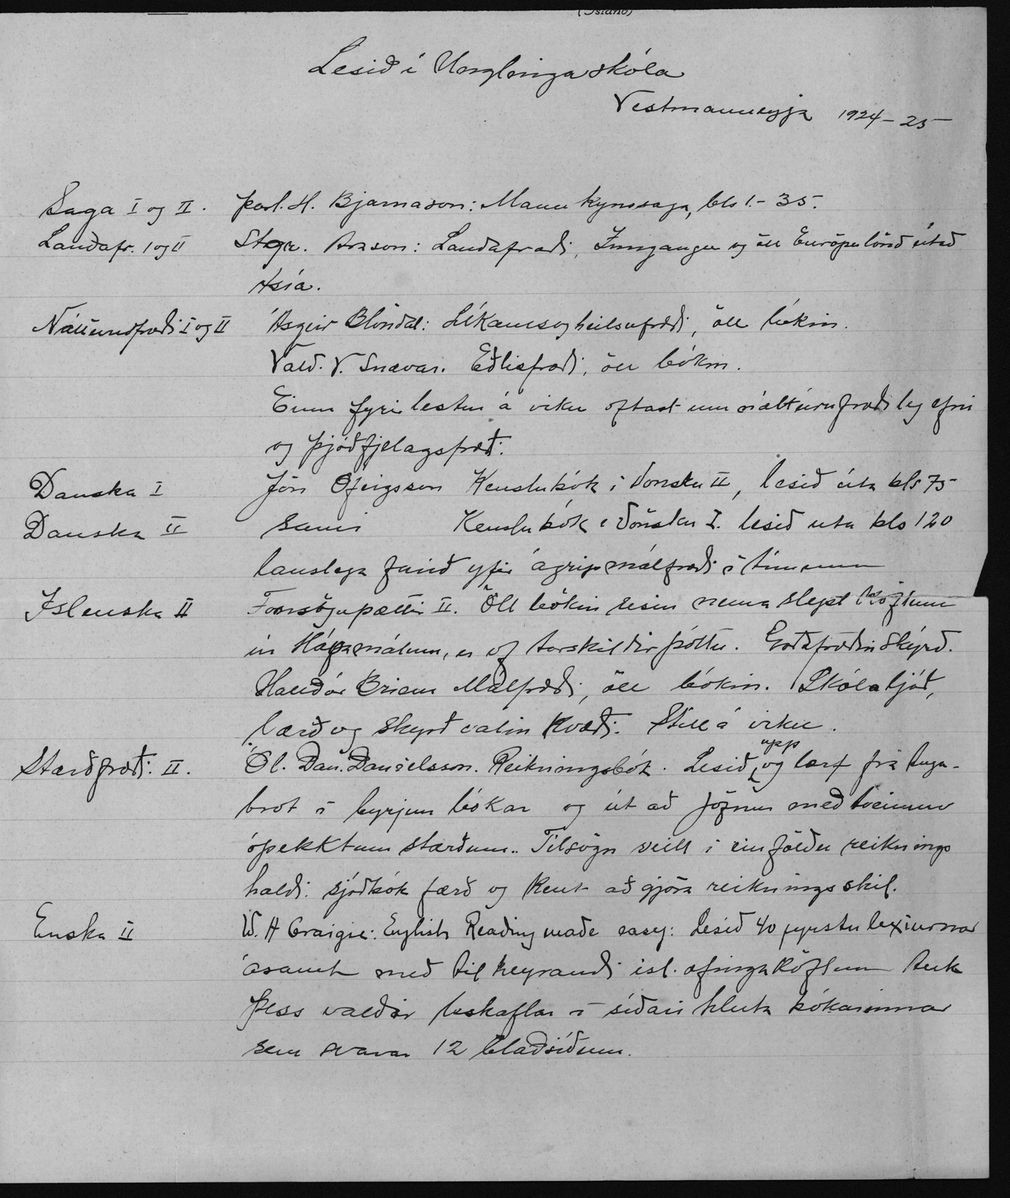 (Ísland)
Lesið í Unglingaskóla
Vestmannaeyja 1924-25
Saga I og II. Þorl. H. Bjarnason: Mannkynssaga, bls 1-35.
Landafr. I og II Stgr. Arason: Landafræði, Inngangur og öll Evrópulönd út að
Asía.
Náttúrufræði I og II Ásgeir Blöndal: Líkams og heilsufræði, öll bókin.
Vald. V. Snævar. Eðlisfræði, öll bókin.
Einn fyrirlestur á viku oftast um náttúrufræðileg efni
og þjóðfjelagsfræð.
Danska I Jón Ofeigsson Kenslubók í Dönsku II, lesið út á bls 75
Danska II sami Kenslubók í Dönsku I. lesið út á bls 120
lauslega farið yfir ágrip málfræði í tímum
Íslenska II Fornsöguþættir II. Öll bókin lesin nema slept köflum
úr Hávamálum, og Auðkilðir þóttu. Goðafræðin skýrð.
Halldór Briem Málfræði, öll bókin. Skólaljóð,
lærð og skýrð valin kvæði. Stíll á viku.
Stærðfræði II. Ól. Dan. Daníelsson. Reikningsbók. Lesið, og upp lært frá tuga-
brot í byrjun bókar og út að jöfnur með tveimur
óþekktum stærðum. Tilsögn veitt í einföldu reiknings
haldi: sjóðbók færð og kent að gjöra reikningsskil.
Enska II W. A Craigie: English Reading made easy: Lesið 40 fyrstu lexíurnar
ásamt með tilheyrandi ísl. æfingaköflum Auk
þess valdir leskaflar í síðari hluta bókarinnar
sem svarar 12 blaðsíðum.